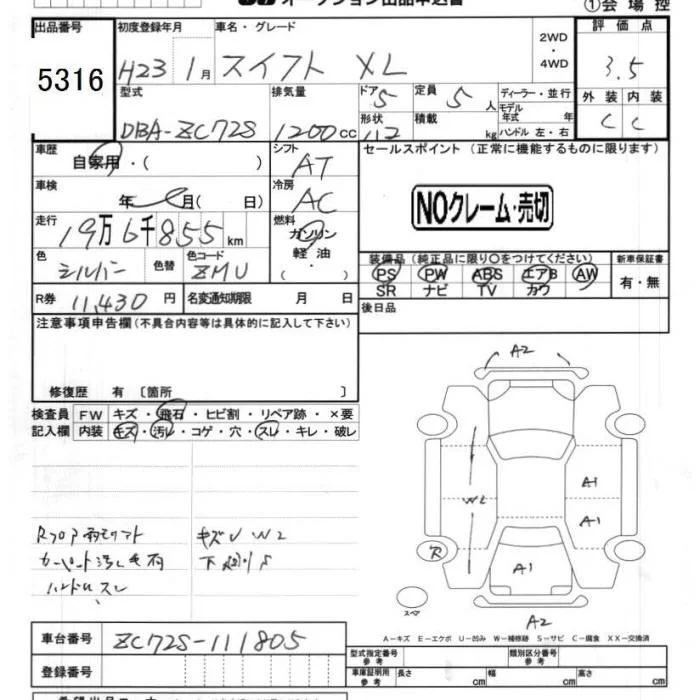 オークション出品申込書
①会場控
出品番号 初度登録年月 車名・グレード 2WD・4WD 評価点
5316 H23 1月 スイフト XL 3.5
型式 排気量 ドア 5 定員 5人 ディーラー・並行 外装 内装
DBA-ZC72S 1200cc 形状 積載 kg モデル年式 年式 ハンドル 左・右 C C
車歴 自家用・( ) シフト AT セールスポイント (正常に機能するものに限ります)
車検 年 月( 日) 冷房 AC NOクレーム・売切
走行 19万6千855km 燃料 ガソリン・軽油・( )
色 シルバー 色替 色コード ZMU 装備品 (純正品に限り○をつけてください) 新車保証書
PS PW ABS エアB AW 有・無
SR ナビ TV カワ
R券 11,430円 名変通知期限 月 日 後日品
注意事項申告欄 (不具合内容等は具体的に記入して下さい)
修復歴 有 〔箇所 〕
検査員 FW キズ・飛石・ヒビ割・リペア跡・×要
記入欄 内装 キズ・汚レ・コゲ・穴・スレ・キレ・破レ
A2
W2 A1
A1
A1
スペア
A2
キズU W2
ハンドルスレ
A-キズ E-エクボ U-凹み W-補修跡 S-サビ C-腐食 XX-交換済
車台番号 ZC72S-111805
型式指定番号 参考 類別区分番号 参考
登録番号 車庫証明用 参考 長さ cm 幅 cm 高さ cm